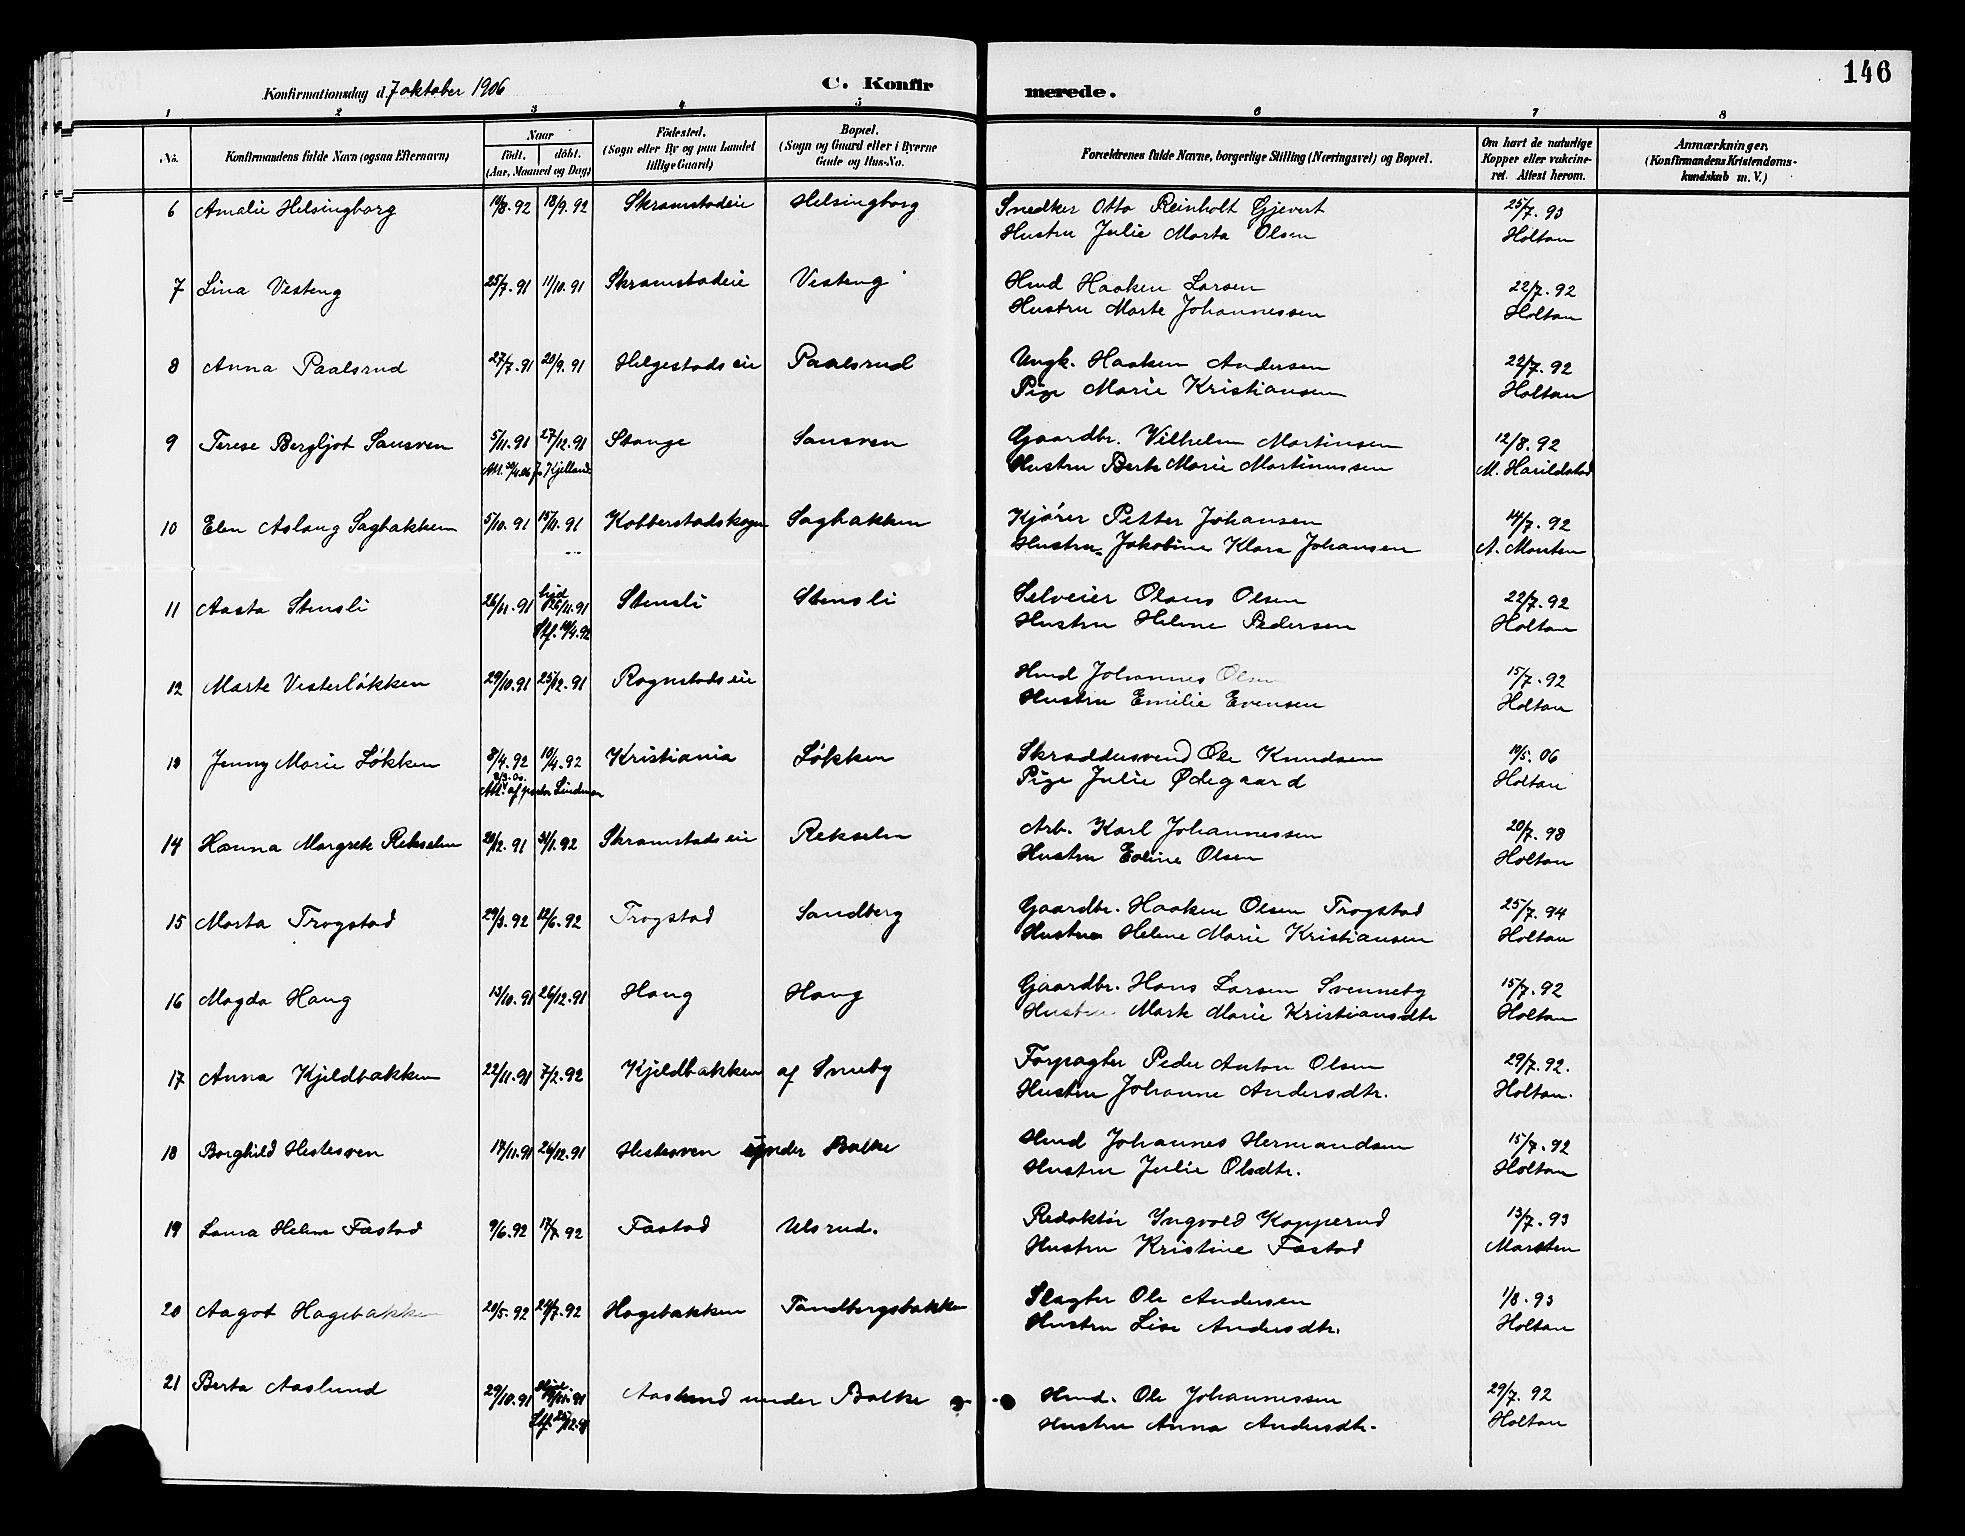 146
Konfirmationsdag d. 7 oktober 1906 C. Konfir merede.
1 2 3 4 5 6 7 8
No. Konfirmandens fulde Navn (ogsaa Efternavn) Naar födt. döbt. (Aar, Maaned og Dag) Födested. (Sogn eller By og paa Landet tillige Gaard) Bopæl. (Sogn og Gaard eller i Byerne Gade og Hus-No. Forældrenes fulde Navne, borgerlige Stilling (Næringsvei) og Bopæl. Om havt de naturlige Kopper eller vakcineret. Attest herom. Anmærkninger. (Konfirmandens Kristendomskundskab m. V.)
6 Amalie Helsingborg 14/8.92 18/9.92 Skramstadeie Helsingborg Snedker Otto Reinholt Gjevert 25/7.93
Hustru Julie Marta Olsen Holtan
7 Lina Vesteng 25/7.91 11/10.91 Skramstadeie Vesteng Hmd Haaken Larsen 22/7.92
Hustru Marte Johannessen Holtan
8 Anna Paalsrud 27/7.91 20/9.91 Helgestadseie Paalsrud Ungk. Haaken Andersen 22/7.92
Pige Marie Kristiansen Holtan
9 Terese Bergljot Sansven 5/11.91 27/12.91 Stange Sansven Gaardbr. Vilhelm Martinsen 12/8.92
Att. Kjelland Hustru Berte Marie Martinussen M. Harildstad
10 Elen Aslaug Sagbakken 5/10.91 15/11.91 Kobberstadskogen Sagbakken Kjører Petter Johansen 14/7.92
Hustru Jakobine Klara Johansen A. Monten
11 Aasta Stensli 26/11.91 26/11.91 Stensli Stensli Selveier Olaus Olsen 22/7.92
Stf. 10/4.92 Hustru Helene Pedersen Holtan
12 Marte Vesterløkken 29/10.91 25/12.91 Rognstadseie Hmd Johannes Olsen 15/7.92
Hustru Emilie Evensen Holtan
13 Jenny Marie Løkken 8/4.92 10/4.92 Kristiania Løkken Skræddersvend Ole Knudsen 10/5.06
Att. af pastor Lindman Pige Julie Ødegaard Holtan
14 Hanna Margrete Rekselen 20/12.91 31/1.92 Skramstadseie Rekselen Arb. Karl Johannessen 20/7.98
Hustru Eveline Olsen Holtan
15 Marta Trogstad 29/3.92 12/6.92 Trogstad Sandberg Gaardbr. Haaken Olsen Trogstad 25/7.94
Hustru Helene Marie Kristiansen Holtan
16 Magda Haug 13/10.91 26/12.91 Haug Haug Gaardbr. Hans Larsen Svenneby 15/7.92
Hustru Marte Marie Kristiansdtr Holtan
17 Anna Kjeldbakken 22/11.91 7/2.92 Kjeldbakken af Sneby Forpagter Peder Anton Olsen 29/7.92.
Hustru Johanne Andersdtr. Holtan.
18 Borghild Hestesven 17/11.91 26/12.91 Hestesven under Balke Hmd Johannes Hermandsen 15/7.92
Hustru Julie Olsdtr. Holtan
19 Laura Helene Fæstad 9/6.92 17/7 92 Fæstad Ulsrud. Redaktør Ingvold Kopperud 13/7.93
Hustru Kristine Fæstad Marsten
20 Aagot Hagebakken 20/5.92 24/7.92 Hagebakken Tandbergsbakken Slagter Ole Andersen 1/8.93
Hustru Lise Andersdtr. Holtan
21 Berta Aaslund 29/10.91 Aaslund under Balke Hmd. Ole Johannessen 29/7.92
Stf. Hustru Anna Andersdtr. Holtan